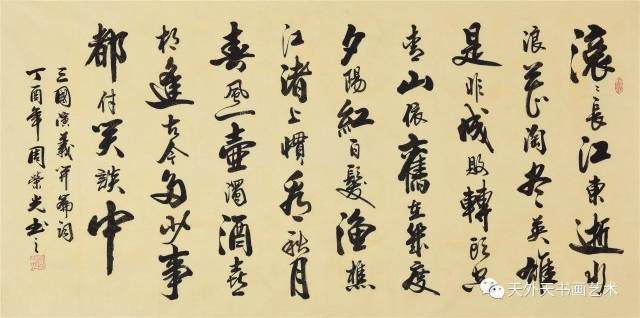 滚〻長江東逝水
浪花淘盡英雄
是非成敗轉頭空
青山依舊在幾度
夕陽紅白髮漁樵
江渚上慣看秋月
春風一壺濁酒喜
相逢古今多少事
都付笑談中
三國演義開篇詞
丁酉年周榮光書之
天外天书画艺术